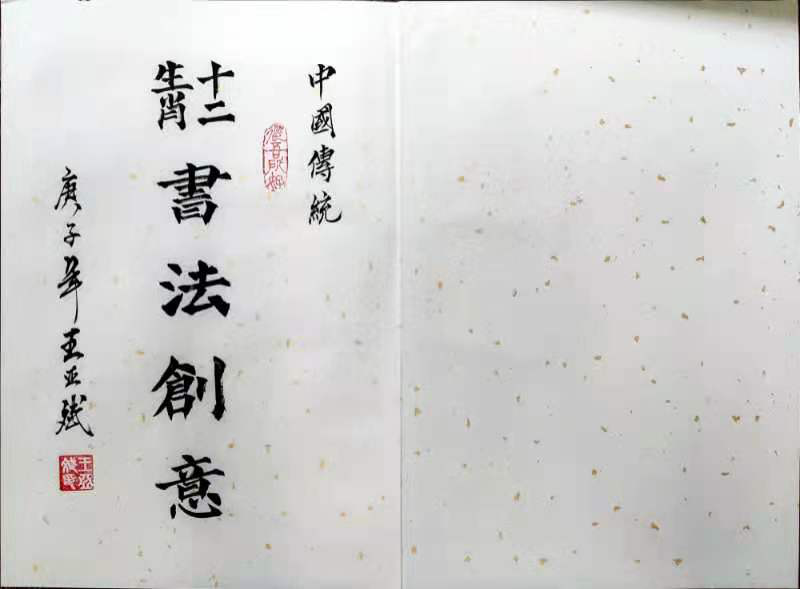 中國傳統
十二
生肖
書法創意
庚子年王亞斌